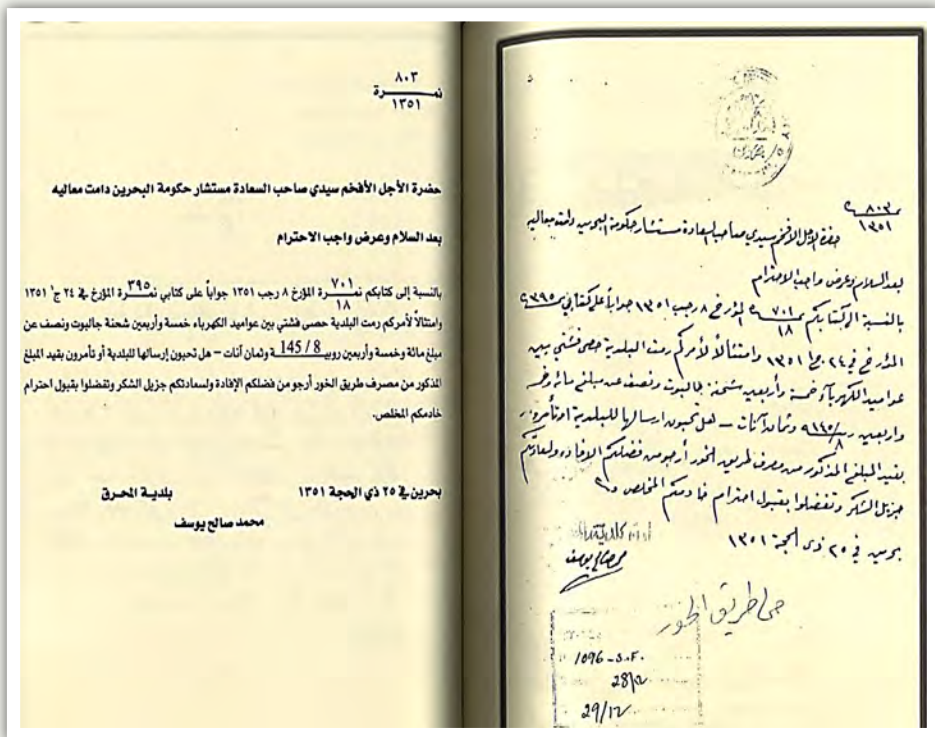 ٨٠٣
نمـــــرة
١٣٥١
حضرة الأجل الأفخم سيدي صاحب السعادة مستشار حكومة البحرين دامت معاليه
بعد السلام وعرض واجب الاحترام
بالنسبة إلى كتابكم نمـ٧٠١ـرة المؤرخ ٨ رجب ١٣٥١ جواباً على كتابي نمـ٣٩٥ـرة المؤرخ في ٢٤ ج١ ١٣٥١
١٨
وامتثالاً لأمركم رمت البلدية حصى فشتي بين عواميد الكهرباء خمسة وأربعين شحنة جالبوت ونصف عن
مبلغ مائة وخمسة وأربعين روبيـ 145 / 8 ـة وثمان آنات – هل تحبون إرسالها للبلدية أو تأمرون بقيد المبلغ
المذكور من مصرف طريق الخور أرجو من فضلكم الإفادة ولسعادتكم جزيل الشكر وتفضلوا بقبول احترام
خادمكم المخلص.
بحرين في ٢٥ ذي الحجة ١٣٥١
بلدية المحرق
محمد صالح يوسف
٨٠٣
١٣٥١
حضرة الأجل الأفخم سيدي صاحب السعادة مستشار حكومة البحرين دامت معاليه
بعد السلام وعرض واجب الاحترام
بالنسبة إلى كتابكم نمـ٧٠١ـرة المؤرخ ٨ رجب ١٣٥١ جواباً على كتابي نمـ٣٩٥ـرة
١٨
المؤرخ في ٢٤ ج١ ١٣٥١ وامتثالاً لأمركم رمت البلدية حصى فشتي بين
عواميد الكهرباء خمسة وأربعين شحنة جالبوت ونصف عن مبلغ مائة وخمسة
واربعين ربـ١٤٥/٨ـية وثمان آنات – هل تحبون ارسالها للبلدية او تأمرون
بقيد المبلغ المذكور من مصرف طريق الخور أرجو من فضلكم الافاده ولسعادتكم
جزيل الشكر وتفضلوا بقبول احترام خادمكم المخلص
بحرين في ٢٥ ذي الحجة ١٣٥١
محمد صالح يوسف
طريق الخور
1096-S.F.
28/12
29/12